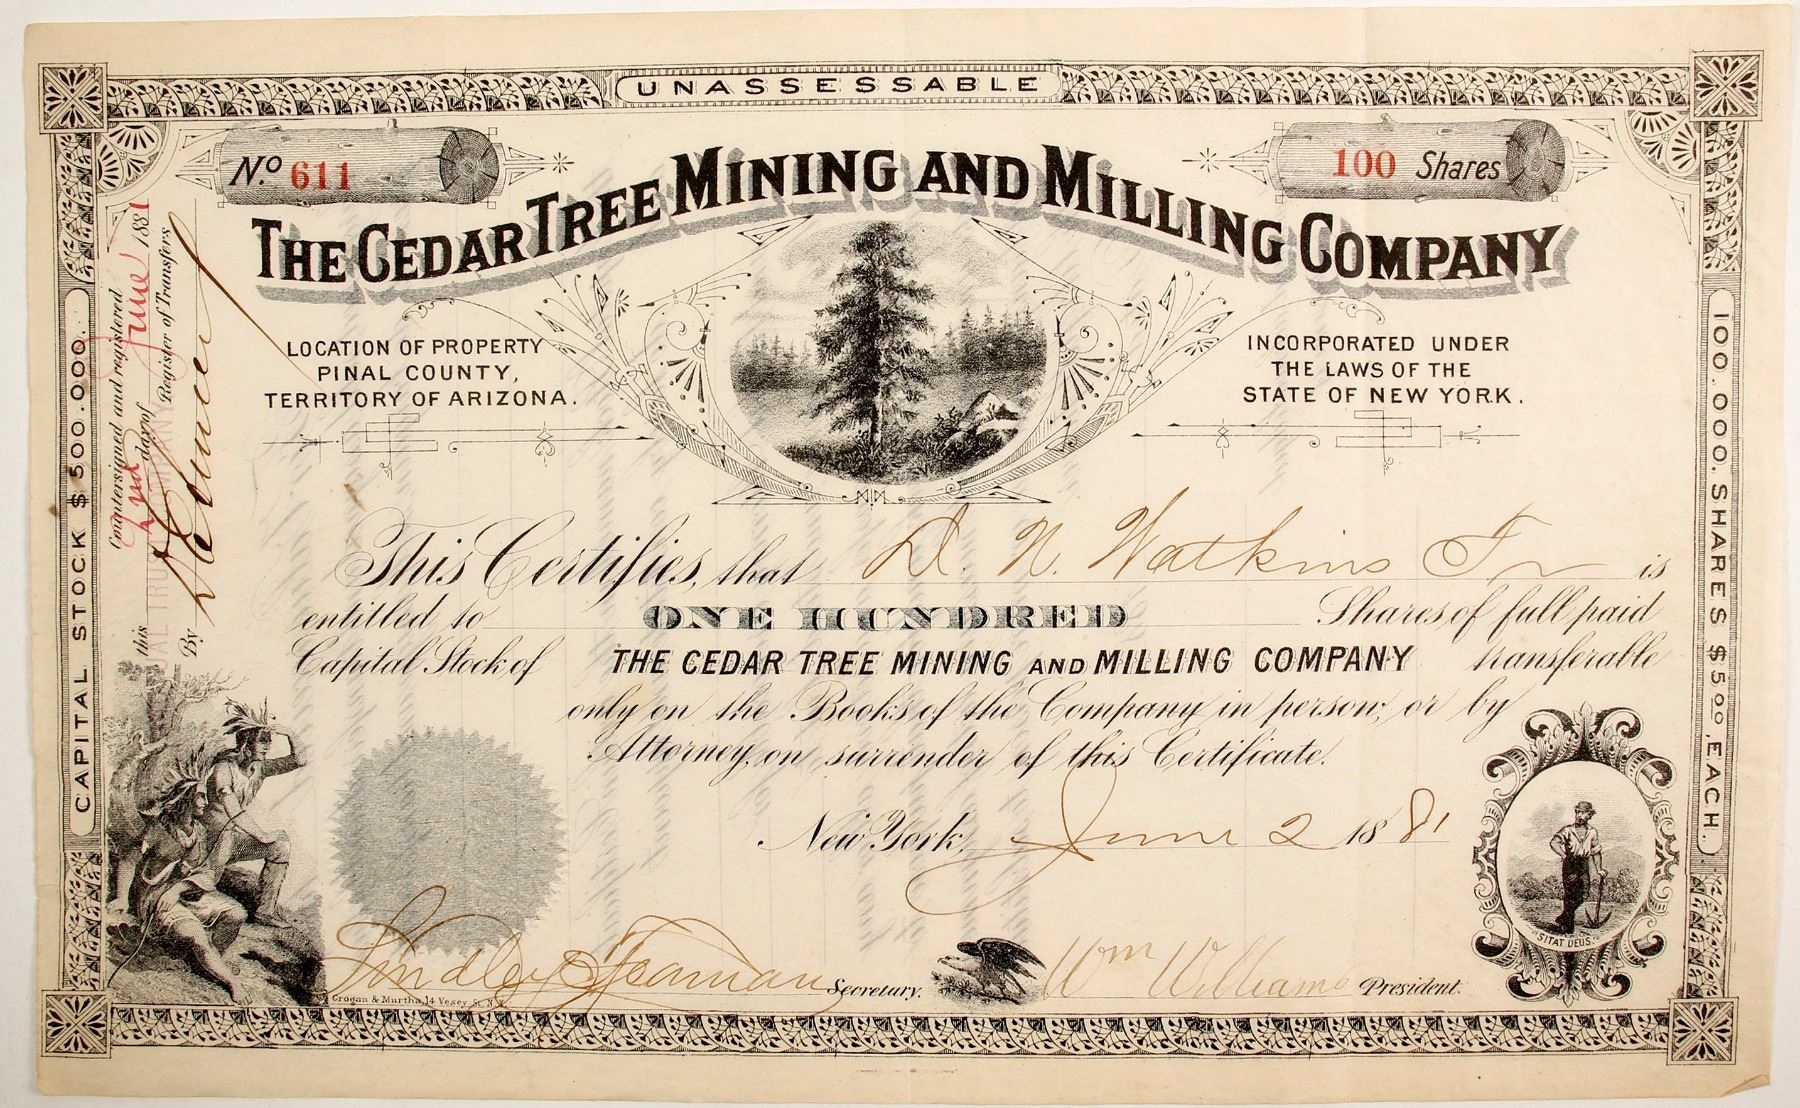 UNASSESSABLE
No. 611
100 Shares
THE CEDAR TREE MINING AND MILLING COMPANY
LOCATION OF PROPERTY
PINAL COUNTY,
TERRITORY OF ARIZONA.
INCORPORATED UNDER
THE LAWS OF THE
STATE OF NEW YORK.
This Certifies, that D. N. Watkins Jr is
entitled to ONE HUNDRED Shares of full paid
Capital Stock of THE CEDAR TREE MINING AND MILLING COMPANY transferable
only on the Books of the Company in person, or by
Attorney, on surrender of this Certificate.
New York, June 2 1881
Lindley Seaman Secretary.
Wm Williams President.
Grogan & Murtha, 14 Vesey St. N.Y.
SITAT DEUS.
CAPITAL STOCK $500.000.
100.000. SHARES $5.00, EACH.
Countersigned and registered
this 2nd day of June 1881
By Register of Transfers